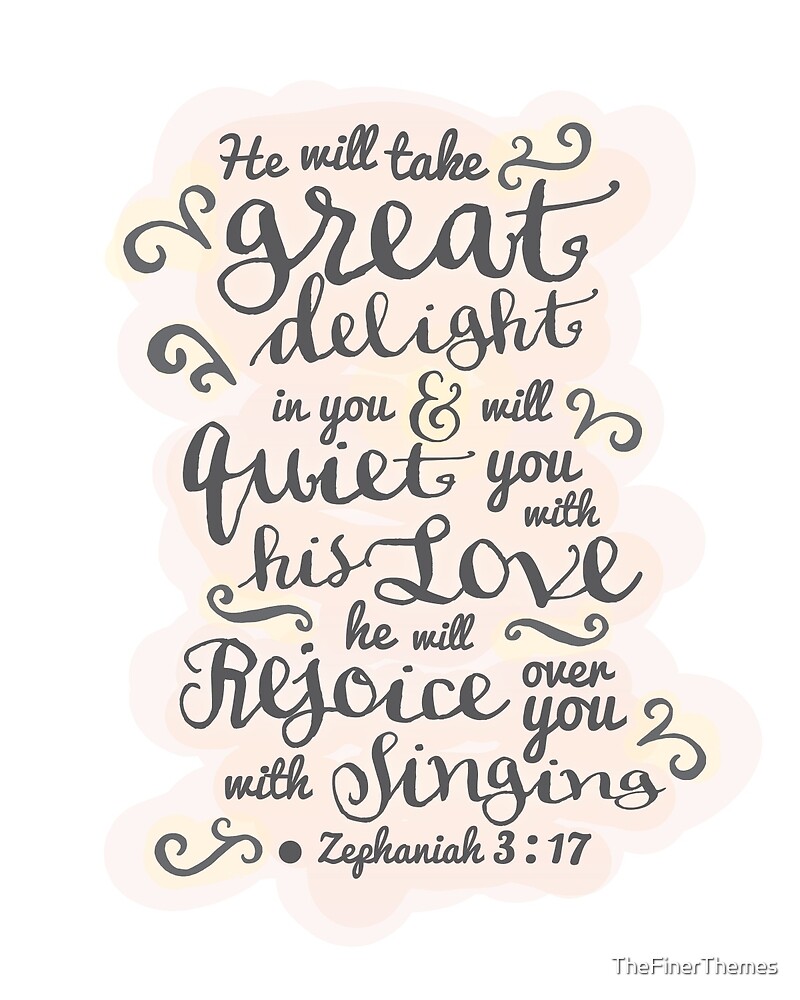 He will take
great
delight
in you & will
quiet you
with
his Love
he will
Rejoice over
you
with Singing
• Zephaniah 3:17
TheFinerThemes